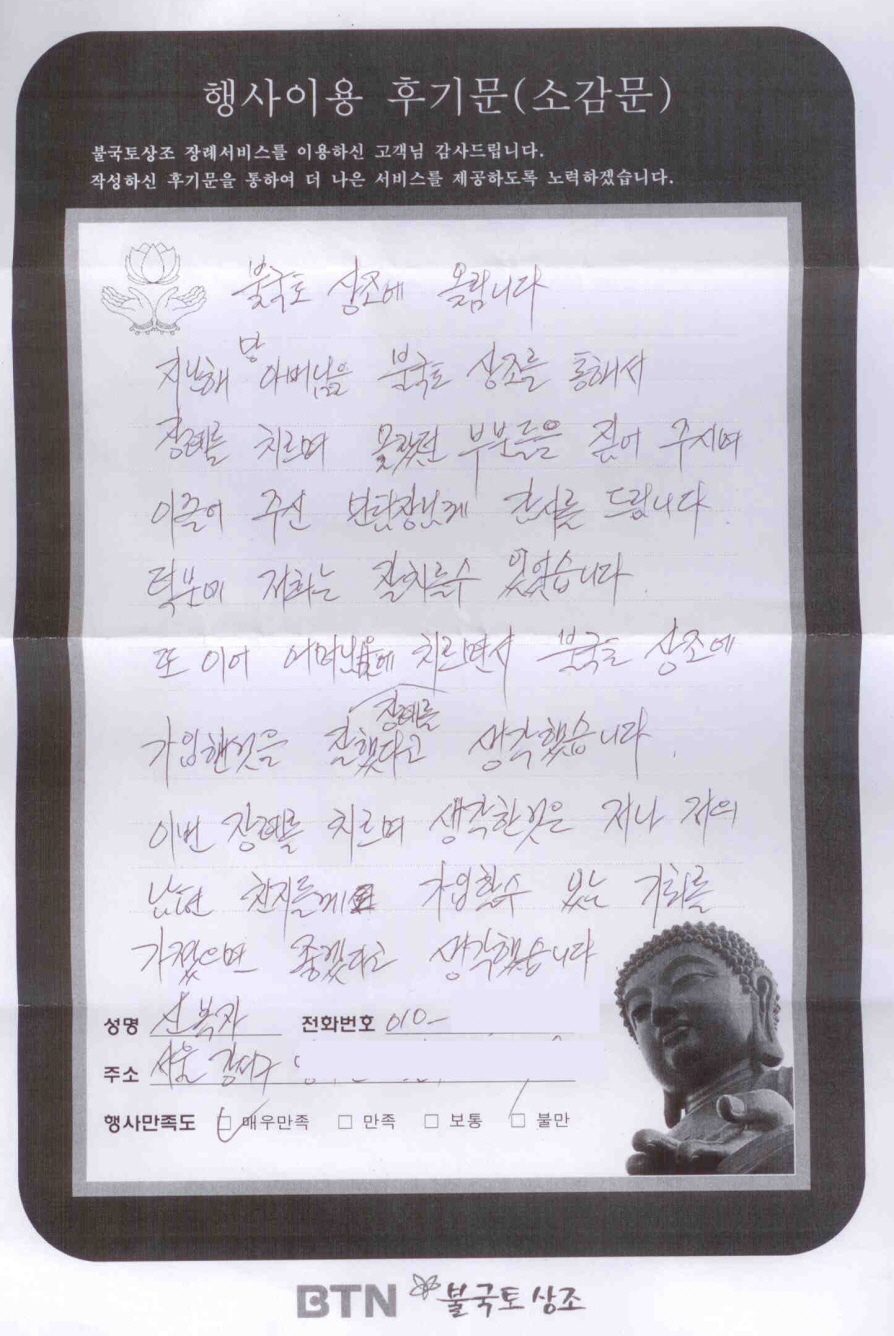 행사이용 후기문(소감문)
불국토상조 장례서비스를 이용하신 고객님 감사드립니다.
작성하신 후기문을 통하여 더 나은 서비스를 제공하도록 노력하겠습니다.
불국토 상조에 올림니다
지난해 망 아버님을 불국토 상조를 통해서
장례를 치르며 몰랐던 부분들을 짚어 주시며
이끌어 주신 감사를 드립니다.
덕분에 저희는 잘치를수 있었습니다.
또 이어 어머님 장례를 치르면서 불국토 상조에
가입한것을 잘했다고 생각했습니다.
이번 장례를 치르며 생각한것은 저나 저의
친지들께 가입할수 있는 기회를
가졌으면 좋겠다고 생각했습니다
성명 신복자 전화번호 010-
주소 서울 강서구
행사만족도 매우만족 만족 보통 불만
BTN 불국토상조